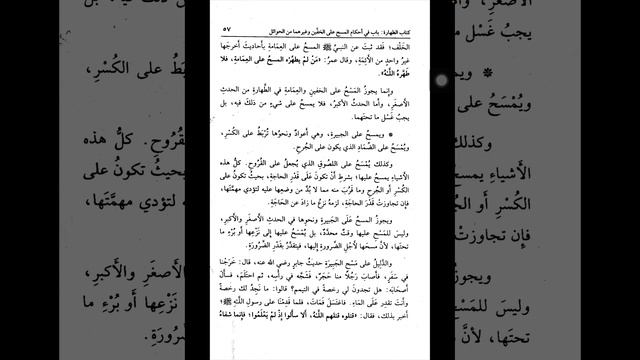 كتاب الطهارة: باب في أحكام المسح على الخفين وغيرهما من الحوائل ٥٧
الخلْف؛ فقد ثبت عن النبيِّ ﷺ المسحُ على العِمَامةِ بأحاديثَ أخرجَها
غيرُ واحدٍ من الأئِمَةِ، وقال عمرُ: «مَنْ لمْ يطهِّرْهُ المسحُ على العِمَامةِ، فلا
طَهَّرهُ اللَّهُ».
وإنما يجوزُ المَسْحُ على الخفينِ والعِمَامةِ في الطَّهارةِ من الحدثِ
الأصغرِ، وأما الحدثُ الأكبرُ، فلا يمسحُ على شيءٍ من ذلكَ فيه، بل
يجبُ غَسْلُ ما تحتَهما.
* ويمسحُ على الجبيرةِ، وهي أعوادٌ ونحوُها تُرْبَطُ على الكَسْرِ،
ويُمْسَحُ على الضِّمَادِ الذي يكون على الجُرحِ.
وكذلك يُمْسَحُ على اللصُوقِ الذي يُجعلُ على القُرُوحِ. كلُّ هذه
الأشياءِ يمسحُ عليها؛ بشرطِ أنْ تكونَ على قَدْرِ الحاجَةِ، بحيثُ تكونُ على
الكَسْرِ أو الجُرحِ وما قَرُبَ منه مما لا بُدَّ من وضعِها عليه لتؤدي مهمَّتَها،
فإن تجاوزتْ قَدْرَ الحاجَةِ، لزمَهُ نزعُ ما زادَ عن الحَاجَةِ.
ويجوزُ المسحُ عَلَى الجَبيرَةِ ونحوِها في الحدثِ الأصْغَرِ والأكبرِ،
وليسَ للمَسْحِ عليها وقتٌ محدَّدٌ، بل يُمْسَحُ عليها إلى نَزْعِها أو بُرْءِ ما
تحتَها، لأنَّ مسحَها لأجْلِ الضَّرورةِ إليها، فيتقدَّرُ بقَدْرِ الضَّرُورَةِ.
والدَّليلُ على مسحِ الجَبيْرَةِ حديثُ جابرٍ رضي الله عنه، قال: خَرَجْنا
في سَفَرٍ، فأصابَ رَجُلًا منا حَجَرٌ، فَشَجَّه في رأسِه، ثم احتلَمَ، فسألَ
أصْحابَه: هل تجدون لي رخصةً في التيممِ؟ قالوا: ما نَجِدُ لكَ رخصةً
وأنتَ تقدِرُ عَلَى المَاءِ. فاغتَسَلَ فَمَاتَ، فلما قَدِمْنا على رسولِ اللَّهِ ﷺ؛
أخبر بذلك، فقال: «قتلوه قتلهم اللَّهُ، ألا سألوا إذْ لمْ يَعْلَمُوا؛ فإنما شفاءُ